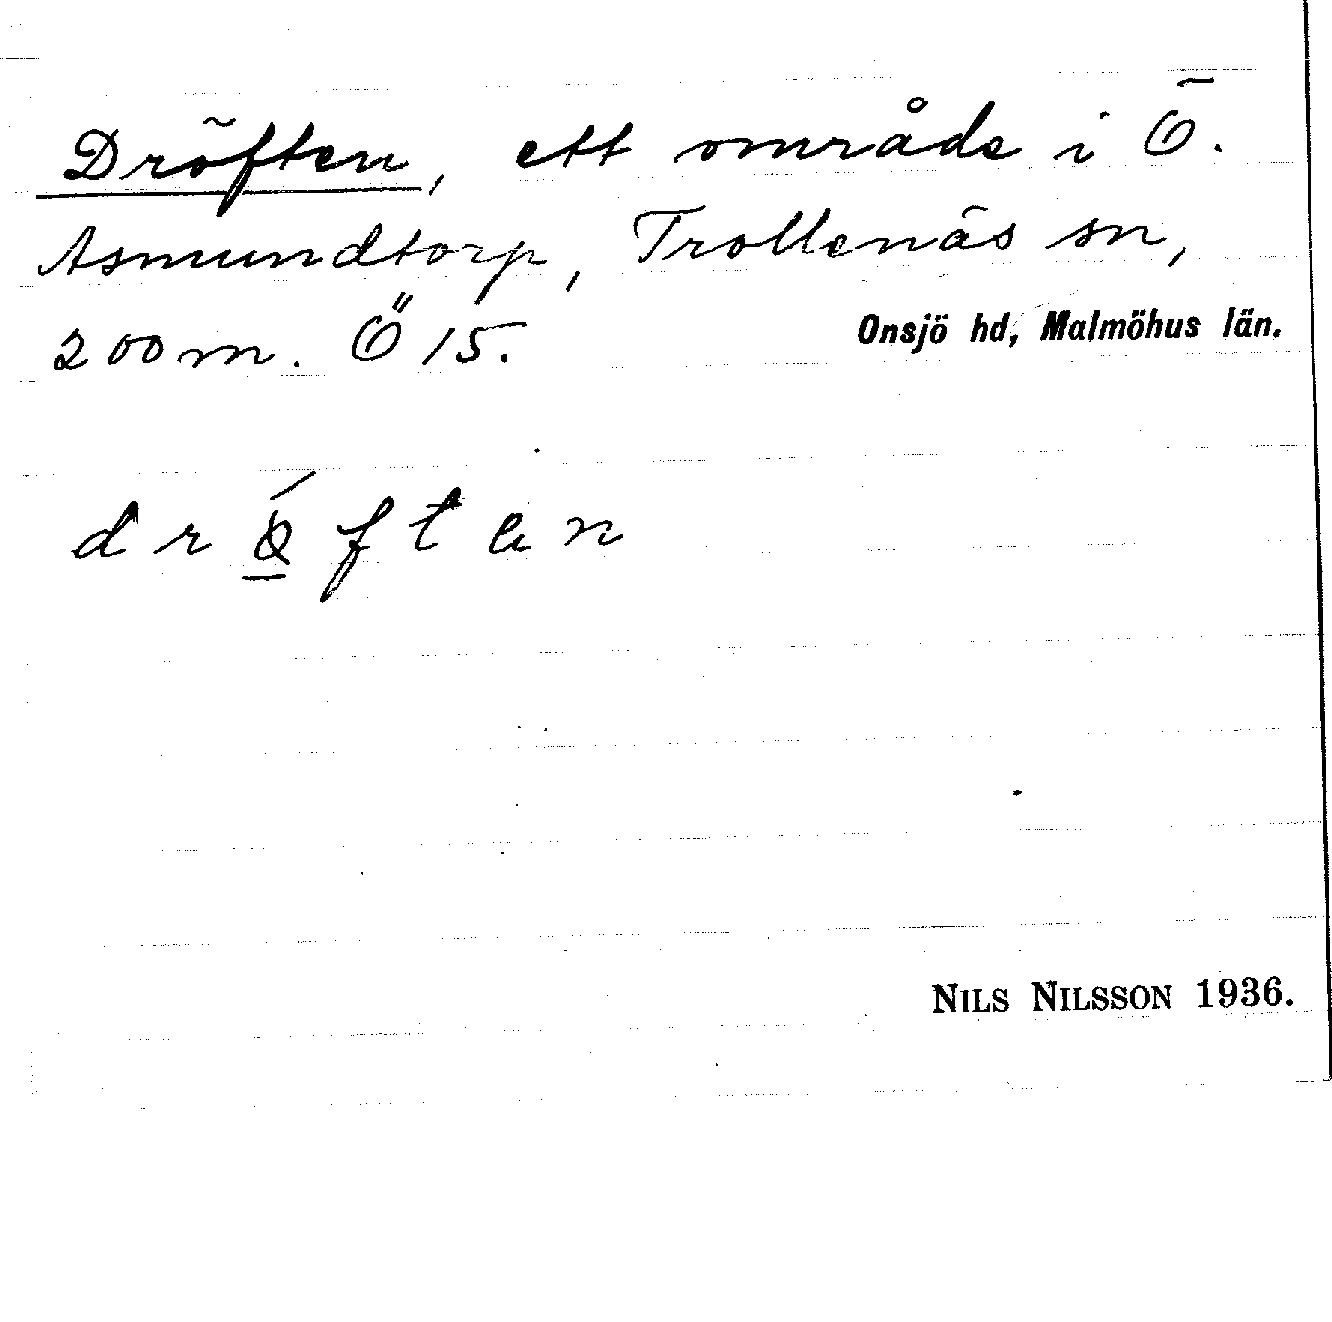 Dröften, ett område i Ö.
Asmundtorp, Trollenäs sn,
200 m. Ö 15.
Onsjö hd, Malmöhus län.
NILS NILSSON 1936.